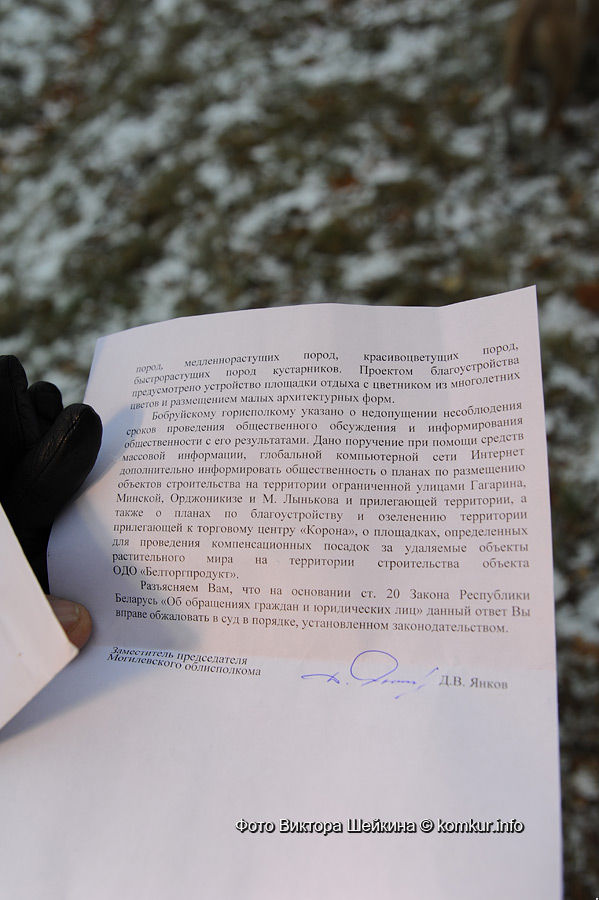 пород, медленнорастущих пород, красивоцветущих пород,
быстрорастущих пород кустарников. Проектом благоустройства
предусмотрено устройство площадки отдыха с цветником из многолетних
цветов и размещением малых архитектурных форм.
Бобруйскому горисполкому указано о недопущении несоблюдения
сроков проведения общественного обсуждения и информирования
общественности с его результатами. Дано поручение при помощи средств
массовой информации, глобальной компьютерной сети Интернет
дополнительно информировать общественность о планах по размещению
объектов строительства на территории ограниченной улицами Гагарина,
Минской, Орджоникизе и М. Лынькова и прилегающей территории, а
также о планах по благоустройству и озеленению территории
прилегающей к торговому центру «Корона», о площадках, определенных
для проведения компенсационных посадок за удаляемые объекты
растительного мира на территории строительства объекта
ОДО «Белторгпродукт».
Разъясняем Вам, что на основании ст. 20 Закона Республики
Беларусь «Об обращениях граждан и юридических лиц» данный ответ Вы
вправе обжаловать в суд в порядке, установленном законодательством.
Заместитель председателя
Могилевского облисполкома
Д.В. Янков
Фото Виктора Шейкина © komkur.info